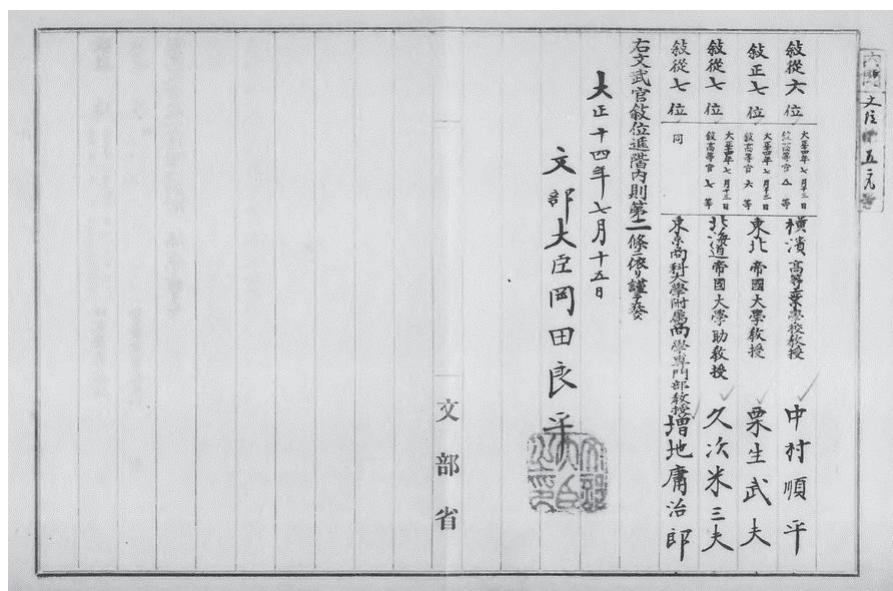 敍從六位 大正十四年七月十三日 敍高等官五等 横濱高等工業學校教授 中村順平
敍正七位 大正十四年七月十三日 敍高等官六等 東北帝國大學教授 栗生武夫
敍從七位 大正十四年七月十三日 敍高等官七等 北海道帝國大學助教授 久次米三夫
敍從七位 同 東京商科大學附属商學專門部教授 増地庸治郎
右文武官敍位進階内則第二條ニ依リ謹テ奏ス
大正十四年七月十五日
文部大臣岡田良平
文部省